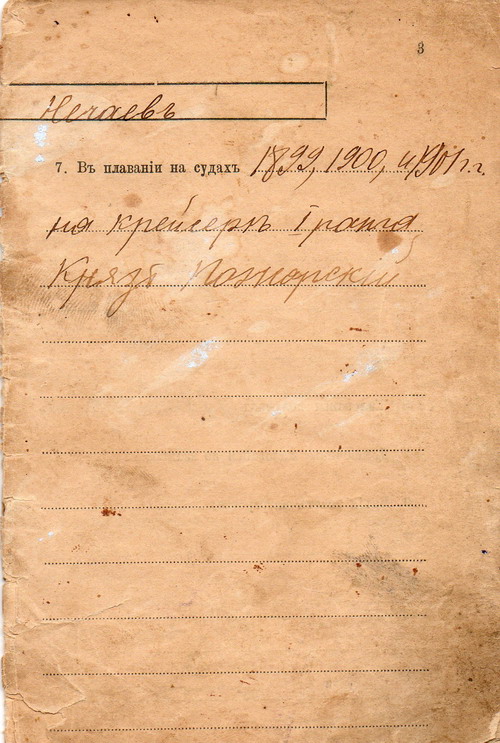 3
Нечаевъ
7. Въ плаваніи на судахъ 1899, 1900, и 1901 г.г.
на крейсерѣ I ранга
Князь Пожарскій